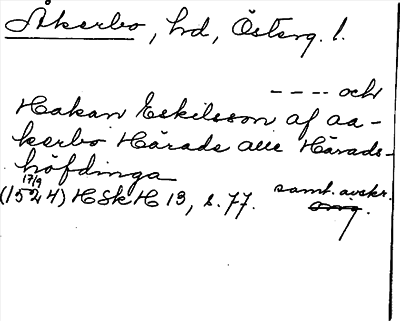 Åkerbo, hd, Österg. l.
---- och
Hakan Eskilsson af aa-
kerbo Härade alle Härads-
höfdinga
17/9
(1524) HSkH 13, s. 77. samt. avskr.
orig.